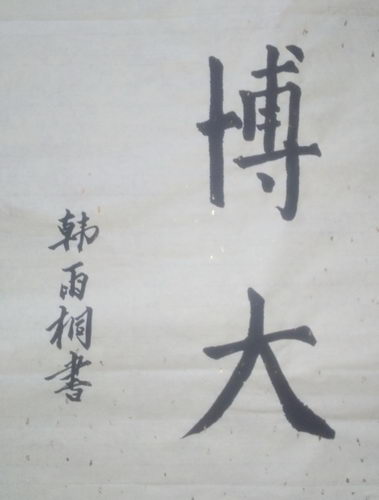 博大
韩雨桐书